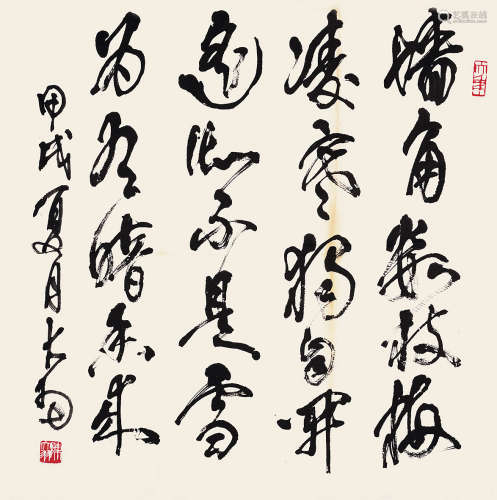 墙角数枝梅
凌寒独自开
遥知不是雪
为有暗香来
甲戌夏月大